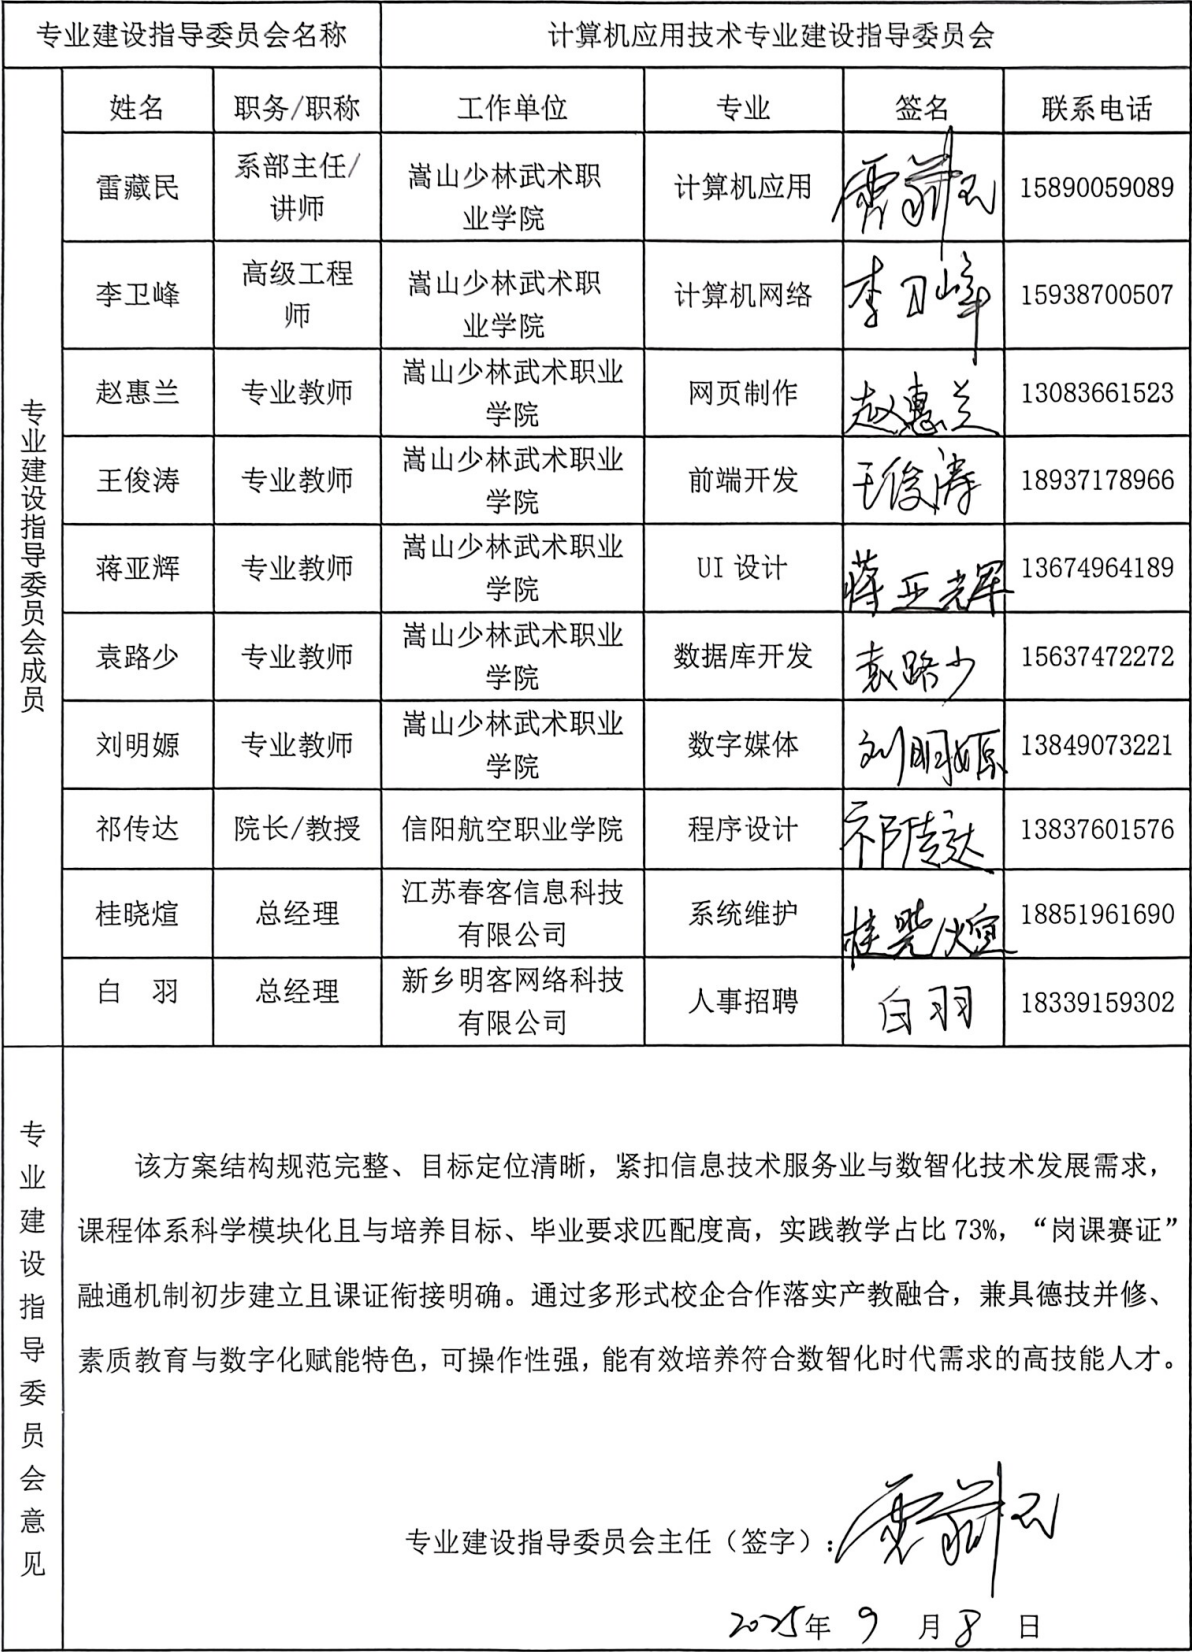 专业建设指导委员会名称 计算机应用技术专业建设指导委员会
专业建设指导委员会成员
姓名 职务/职称 工作单位 专业 签名 联系电话
雷藏民 系部主任/讲师 嵩山少林武术职业学院 计算机应用 雷藏民 15890059089
李卫峰 高级工程师 嵩山少林武术职业学院 计算机网络 李卫峰 15938700507
赵惠兰 专业教师 嵩山少林武术职业学院 网页制作 赵惠兰 13083661523
王俊涛 专业教师 嵩山少林武术职业学院 前端开发 王俊涛 18937178966
蒋亚辉 专业教师 嵩山少林武术职业学院 UI 设计 蒋亚辉 13674964189
袁路少 专业教师 嵩山少林武术职业学院 数据库开发 袁路少 15637472272
刘明嫄 专业教师 嵩山少林武术职业学院 数字媒体 刘明嫄 13849073221
祁传达 院长/教授 信阳航空职业学院 程序设计 祁传达 13837601576
桂晓煊 总经理 江苏春客信息科技有限公司 系统维护 桂晓煊 18851961690
白 羽 总经理 新乡明客网络科技有限公司 人事招聘 白羽 18339159302
专业建设指导委员会意见
该方案结构规范完整、目标定位清晰，紧扣信息技术服务业与数智化技术发展需求，
课程体系科学模块化且与培养目标、毕业要求匹配度高，实践教学占比 73%，“岗课赛证”
融通机制初步建立且课证衔接明确。通过多形式校企合作落实产教融合，兼具德技并修、
素质教育与数字化赋能特色，可操作性强，能有效培养符合数智化时代需求的高技能人才。
专业建设指导委员会主任（签字）：雷藏民
2025年 9 月 8 日